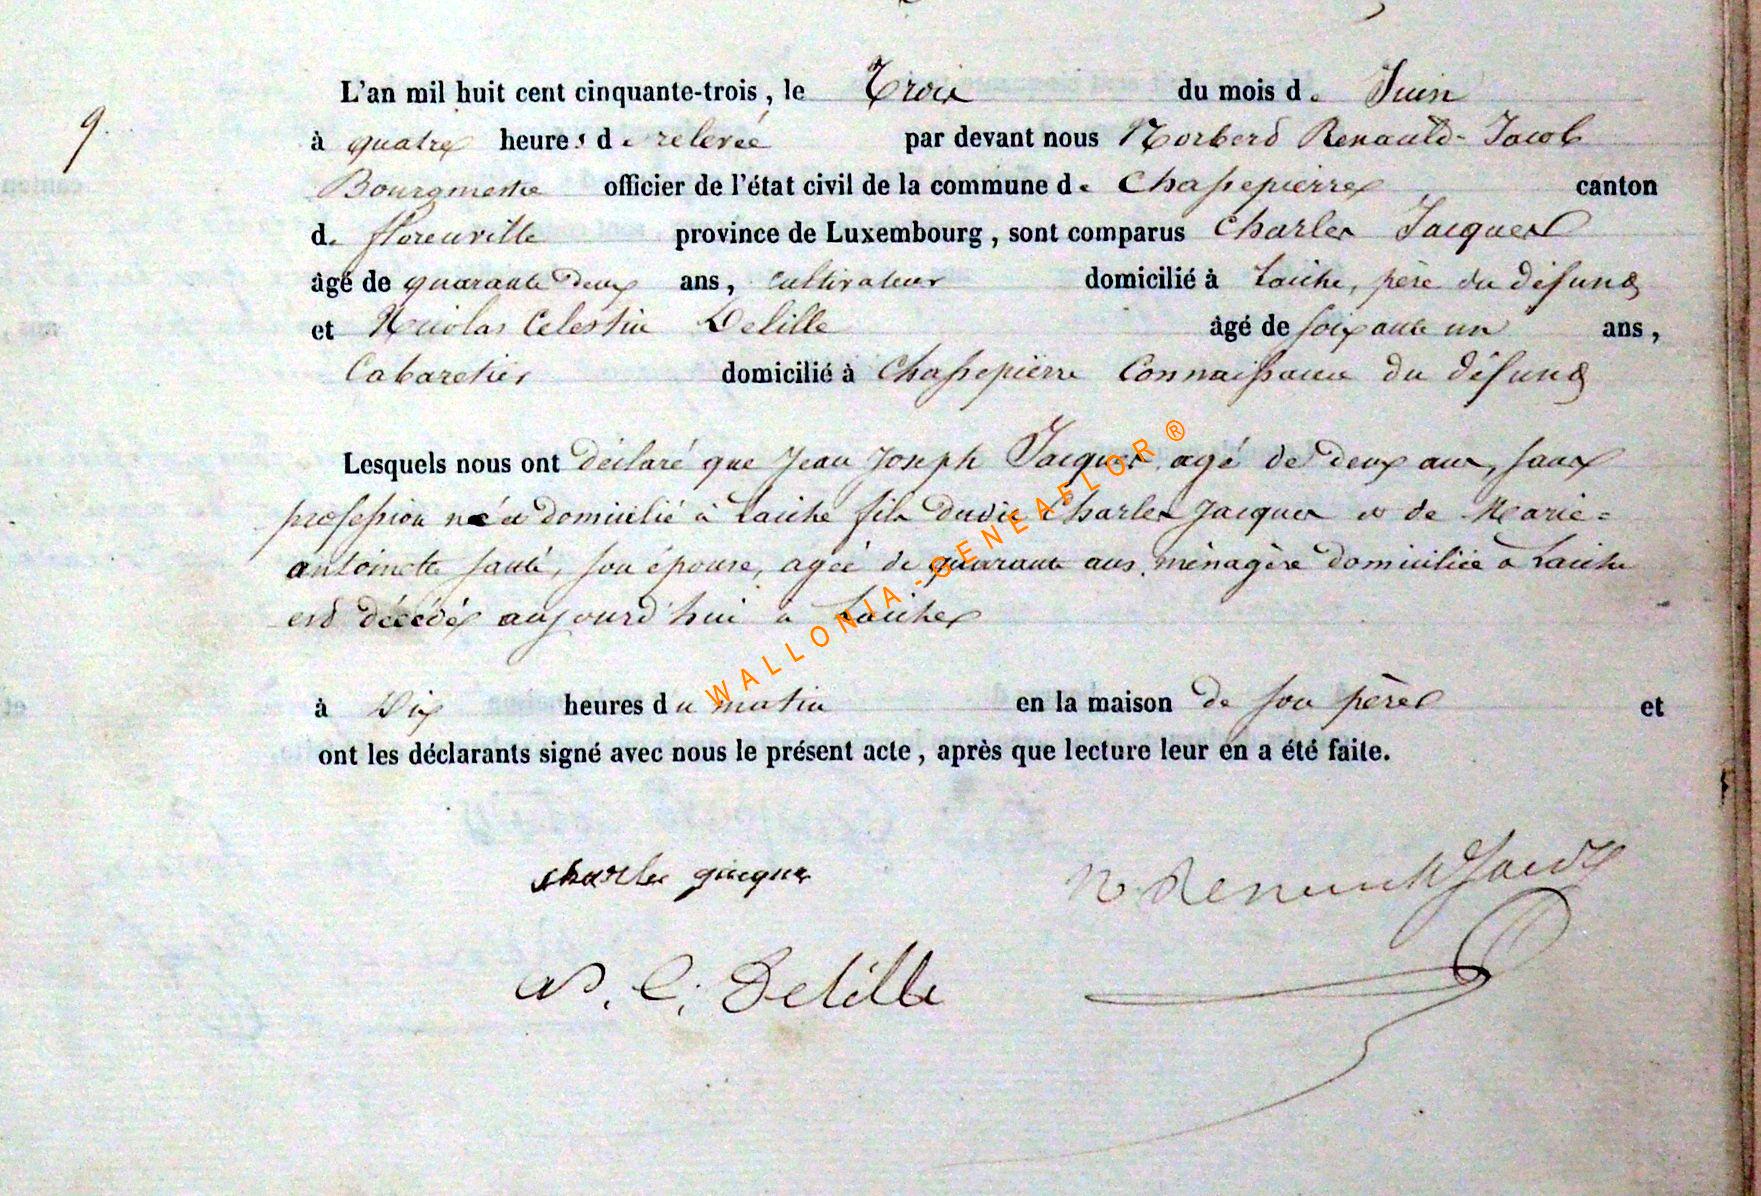 L'an mil huit cent cinquante-trois, le Trois du mois de Juin
9.
à quatre heures de relevée par devant nous Norberd Renauld-Jacob
Bourgmestre officier de l'état civil de la commune de Chassepierre canton
de florenville province de Luxembourg, sont comparus Charles Jacques
âgé de quarante deux ans, cultivateur domicilié à Laiche, père du défunt
et Nicolas Celestin Delille âgé de soixante un ans,
Cabaretier domicilié à Chassepierre Connaissance du défunt
Lesquels nous ont déclaré que Jean Joseph Jacques, agé de deux ans, sans
profession né et domicilié à Laiche fils dudit Charles Jacques et de Marie-
antoinette santé, son épouse, agée de quarante ans, ménagère domiciliée à Laiche
est décédé aujourd'hui à Laiche
à Dix heures du matin en la maison de son père et
ont les déclarants signé avec nous le présent acte, après que lecture leur en a été faite.
charles jacques
N Renauld Jacob
N. C. Delille
WALLONIA-GENEAFLOR ®